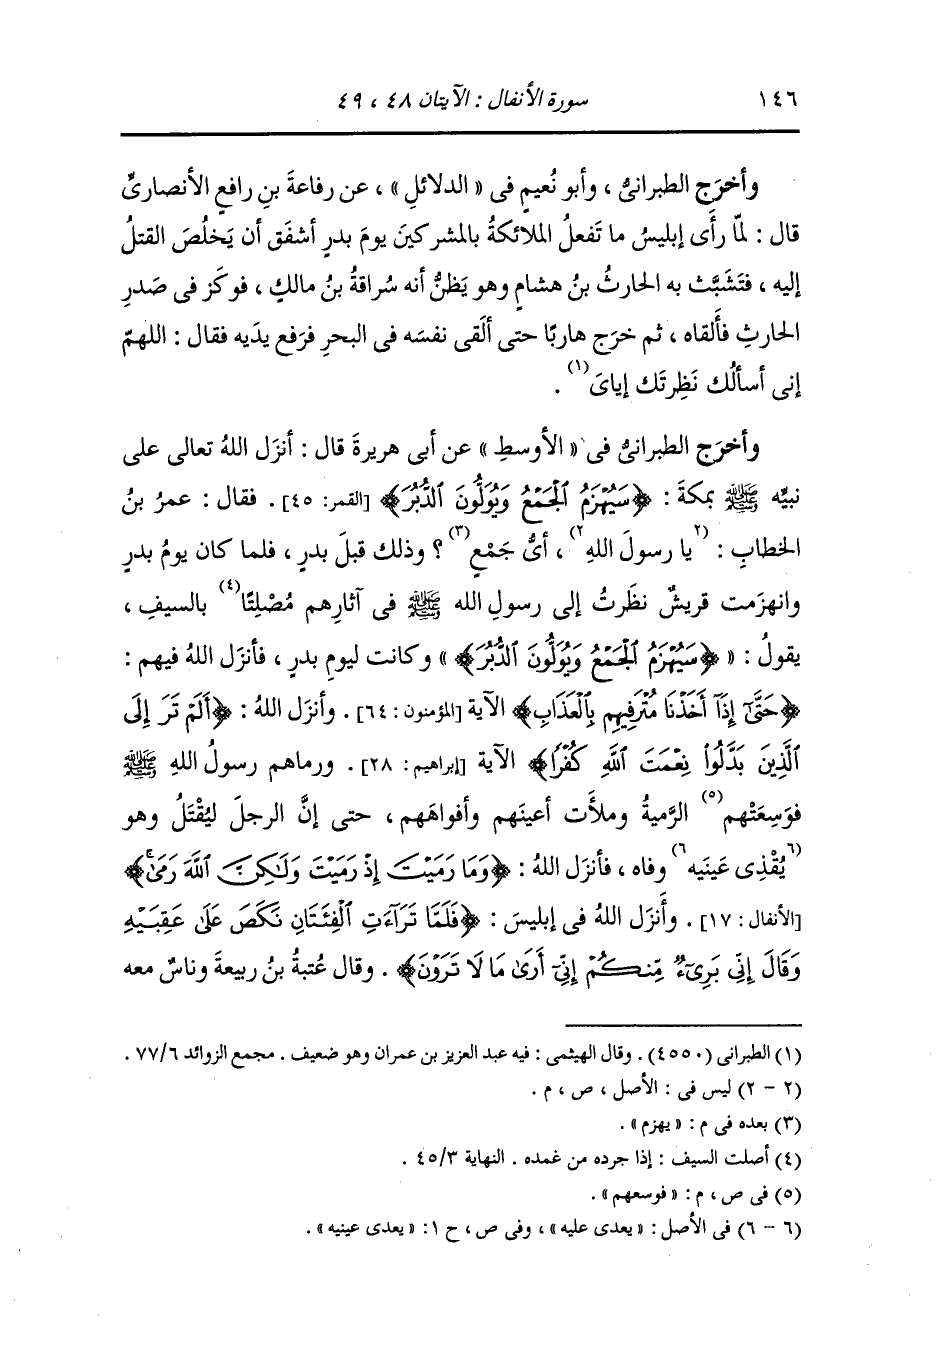 ١٤٦ سورة الأنفال : الآيتان ٤٨ ، ٤٩
وأخرَج الطبرانىُّ ، وأبو نُعيمٍ فى « الدلائلِ » ، عن رفاعةَ بنِ رافعٍ الأنصارىِّ
قال : لمّا رأَى إبليسُ ما تَفعلُ الملائكةُ بالمشركينَ يومَ بدرٍ أشفَق أن يَخلُصَ القتلُ
إليه ، فتَشبَّث به الحارثُ بنُ هشامٍ وهو يَظنُّ أنه سُراقةُ بنُ مالكٍ ، فوكَز فى صَدرِ
الحارثِ فألقاه ، ثم خرَج هاربًا حتى ألقَى نفسَه فى البحرِ فرَفع يدَيه فقال : اللهمّ
إنى أسألُك نَظِرتَك إياىَ(١) .
وأخرَج الطبرانىُّ فى « الأوسطِ » عن أبى هريرةَ قال : أنزَل اللهُ تعالى على
نبيِّه ﷺ بمكةَ : ﴿سَيُهْزَمُ ٱلْجَمْعُ وَيُوَلُّونَ ٱلدُّبُرَ﴾ [القمر: ٤٥] . فقال : عمرُ بنُ
الخطابِ : (٢ يا رسولَ اللهِ ٢) ، أىُّ جَمْعٍ(٣) ؟ وذلك قبلَ بدرٍ ، فلما كان يومُ بدرٍ
وانهزَمت قريشٌ نظَرتُ إلى رسولِ الله ﷺ فى آثارِهم مُصْلِتًا(٤) بالسيفِ ،
يقولُ : « ﴿سَيُهْزَمُ ٱلْجَمْعُ وَيُوَلُّونَ ٱلدُّبُرَ﴾ » وكانت ليومِ بدرٍ ، فأنزَل اللهُ فيهم :
﴿حَتَّىٰٓ إِذَآ أَخَذْنَا مُتْرَفِيهِم بِٱلْعَذَابِ﴾ الآية [المؤمنون : ٦٤] . وأنزَل اللهُ : ﴿أَلَمْ تَرَ إِلَى
ٱلَّذِينَ بَدَّلُوا۟ نِعْمَتَ ٱللَّهِ كُفْرًا﴾ الآية [إبراهيم : ٢٨] . ورماهم رسولُ اللهِ ﷺ
فوَسِعَتْهم(٥) الرَّميةُ وملأَت أعينَهم وأفواهَهم ، حتى إنَّ الرجلَ ليُقْتَلُ وهو
(٦ يُقْذِى عَينَيه ٦) وفاه ، فأنزَل اللهُ : ﴿وَمَا رَمَيْتَ إِذْ رَمَيْتَ وَلَٰكِنَّ ٱللَّهَ رَمَىٰ ۚ﴾
[الأنفال : ١٧] . وأَنزَل اللهُ فى إبليسَ : ﴿فَلَمَّا تَرَآءَتِ ٱلْفِئَتَانِ نَكَصَ عَلَىٰ عَقِبَيْهِ
وَقَالَ إِنِّى بَرِىٓءٌ مِّنكُمْ إِنِّىٓ أَرَىٰ مَا لَا تَرَوْنَ﴾ . وقال عُتبةُ بنُ ربيعةَ وناسٌ معه
(١) الطبرانى (٤٥٥٠) . وقال الهيثمى : فيه عبد العزيز بن عمران وهو ضعيف . مجمع الزوائد ٧٧/٦ .
(٢ - ٢) ليس فى : الأصل ، ص ، م .
(٣) بعده فى م : « يهزم » .
(٤) أصلت السيف : إذا جرده من غمده . النهاية ٤٥/٣ .
(٥) فى ص ، م : « فوسعهم » .
(٦ - ٦) فى الأصل : « يعدى عليه » ، وفى ص ، ح ١: « يعدى عينيه » .